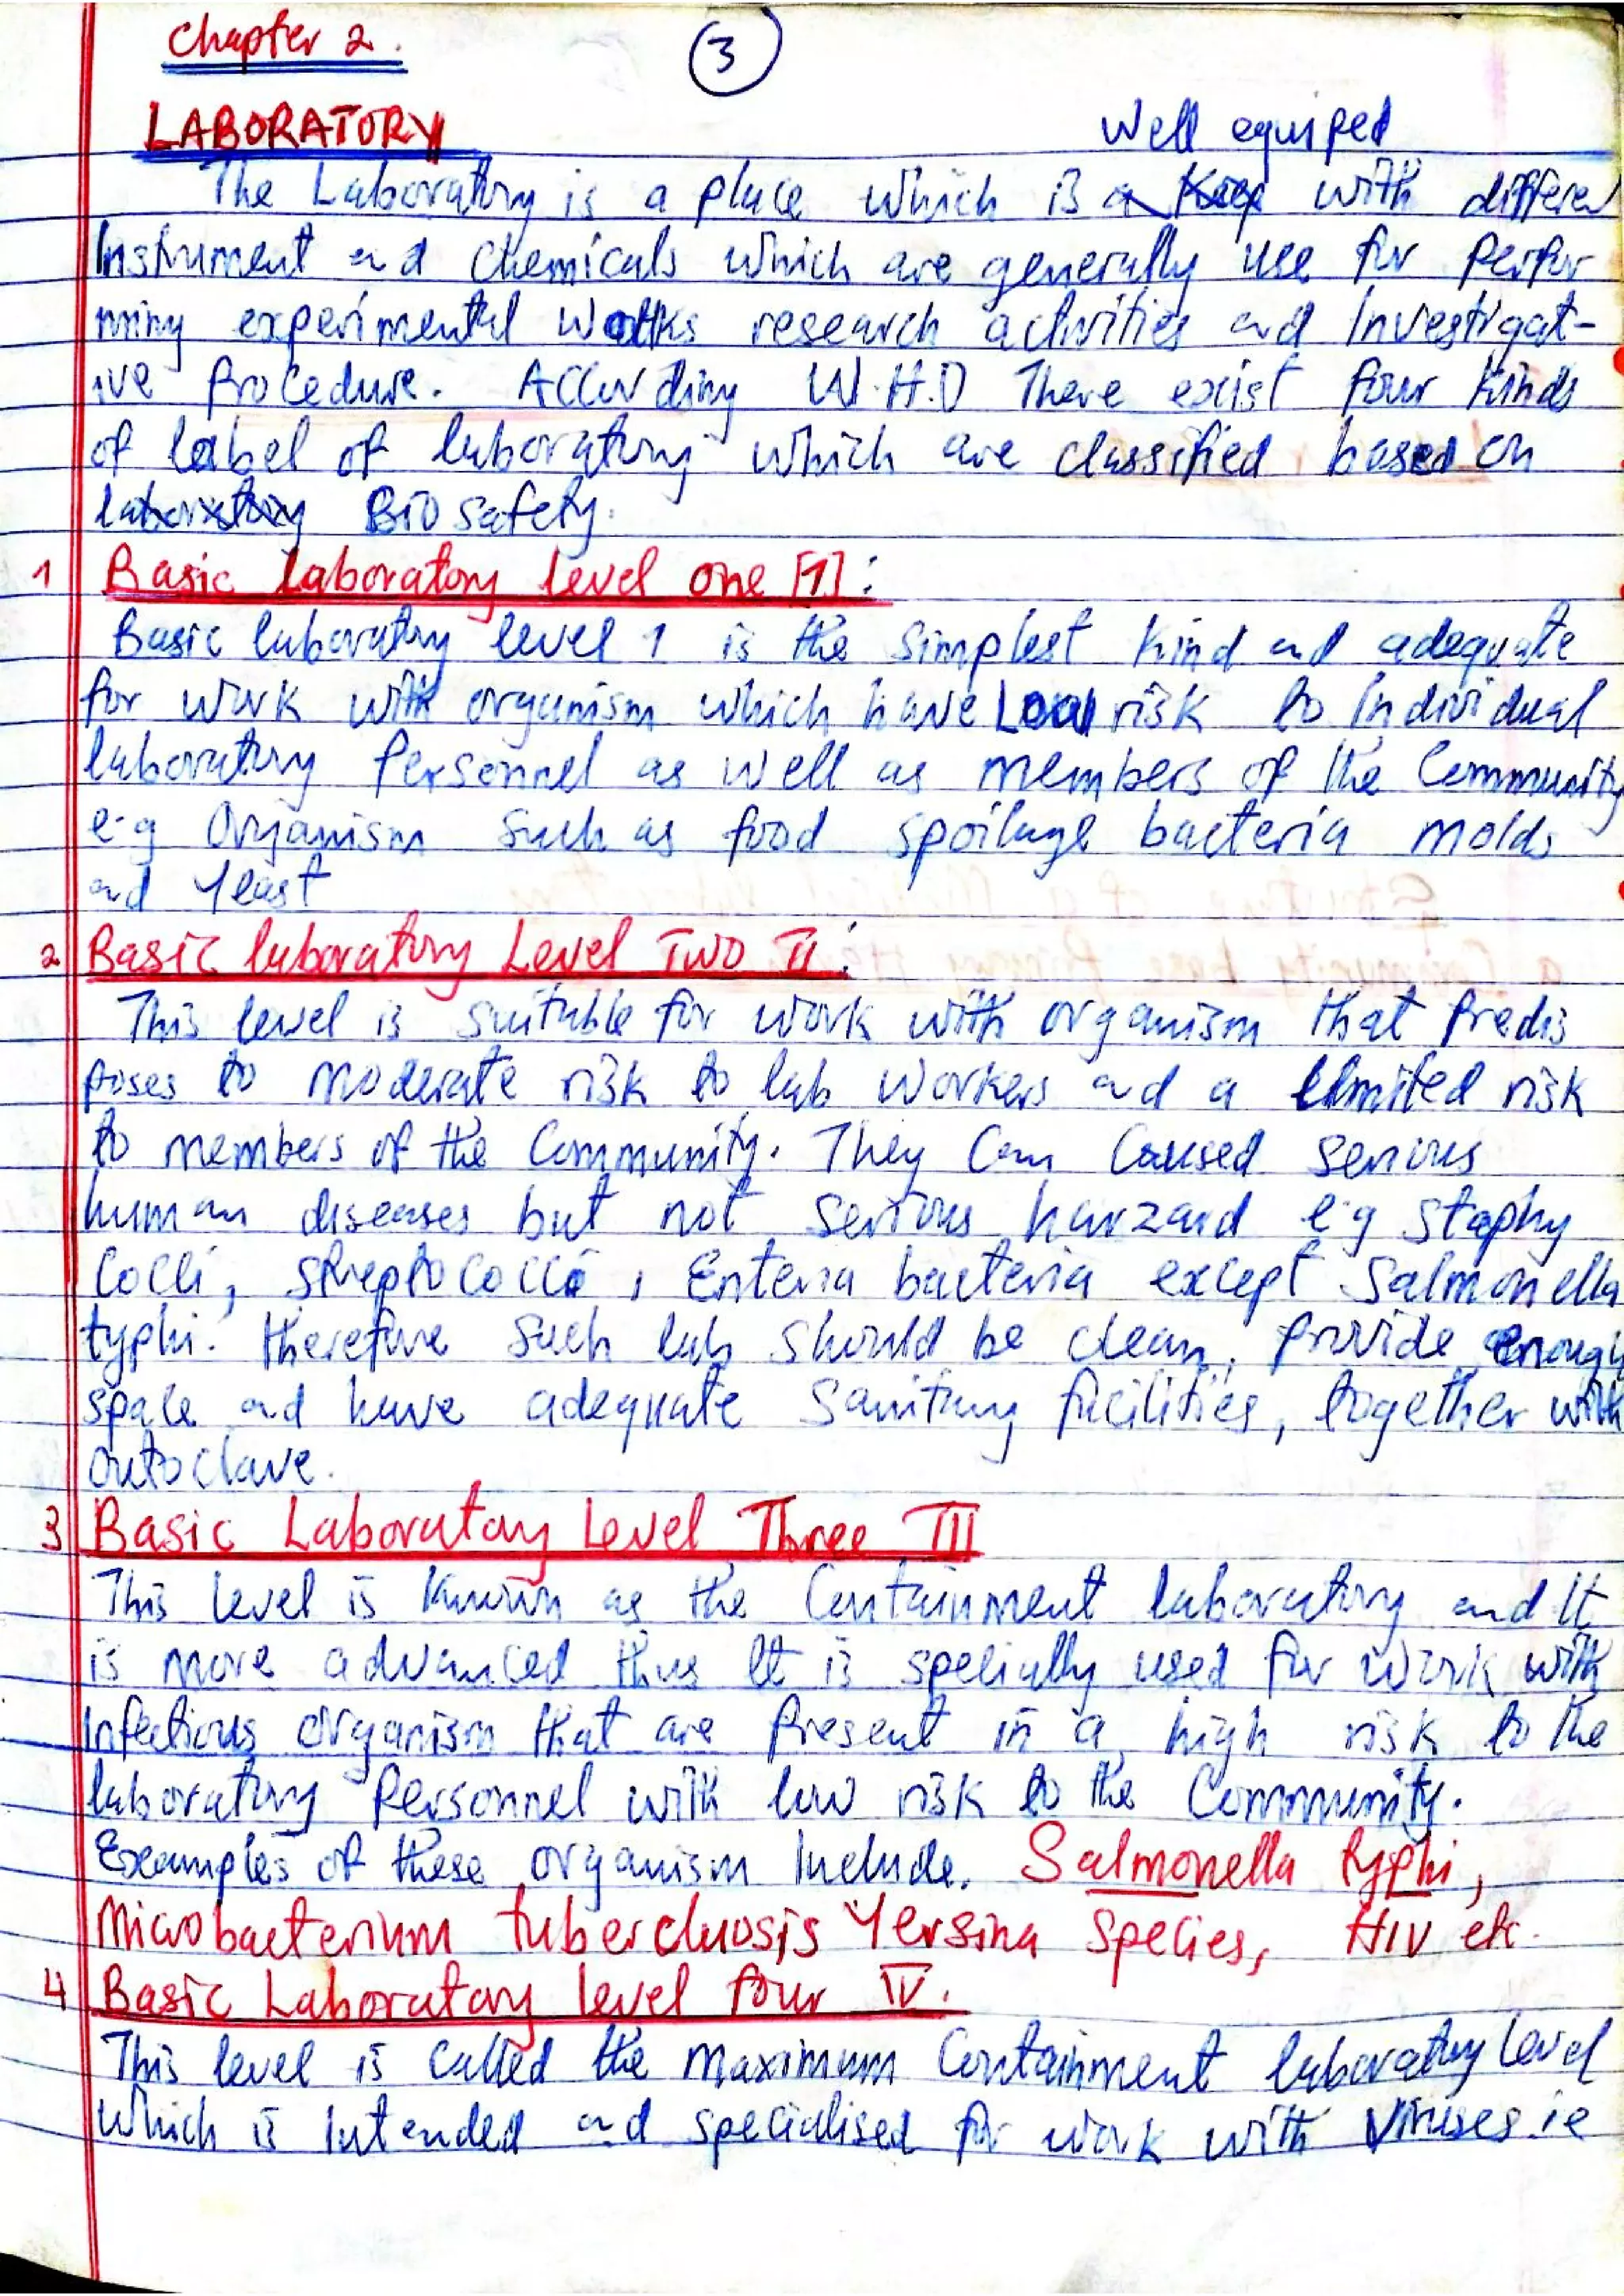 Chapter 2.
3
LABORATORY
Well equiped
The Laboratory is a place which is with differen
Instrument and chemicals which are generally use for perfor
ming experimental works research activities and Investigat-
ive Procedure. According W.H.O There exist four kinds
of label of laboratory which are classified based on
laboratory Bio safety.
1 Basic laboratory level one [1]:
Basic laboratory level 1 is the simplest kind and adequate
for work with organism which have Low risk to Individual
laboratory Personnel as well as members of the Community
e.g Organism such as food spoilage bacteria molds
and Yeast
2 Basic laboratory Level Two II:
This level is suitable for work with organism that Predis
poses to moderate risk to lab workers and a limited risk
to members of the Community. They Can Caused serious
human diseases but not serious harzard e.g staphy
Cocci, streptococci, Enteria bacteria except Salmonella
typhi. therefore such lab should be clean, Provide enough
space and have adequate sanitary facilities, together with
autoclave.
3 Basic Laboratory Level Three III
This level is known as the Containment laboratory and It
is more advanced thus It is specially used for work with
Infectious organism that are Present in a high risk to the
laboratory Personnel with low risk to the Community.
Examples of these organism Include. Salmonella typhi,
Microbacterium tubercluosis Yersina species, HIV etc.
4 Basic Laboratory level four IV.
This level is called the maximum Containment laboratory level
Which is Intended and specialised for work with Viruses ie